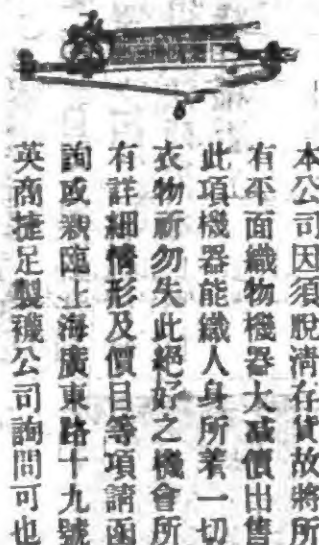 本公司因須脫清存貨故將所
有平面織物機器大減價出售
此項機器能織人身所著一切
衣物祈勿失此絕好之機會所
有詳細情形及價目等項請函
詢或親臨上海廣東路十九號
英商捷足製襪公司詢問可也